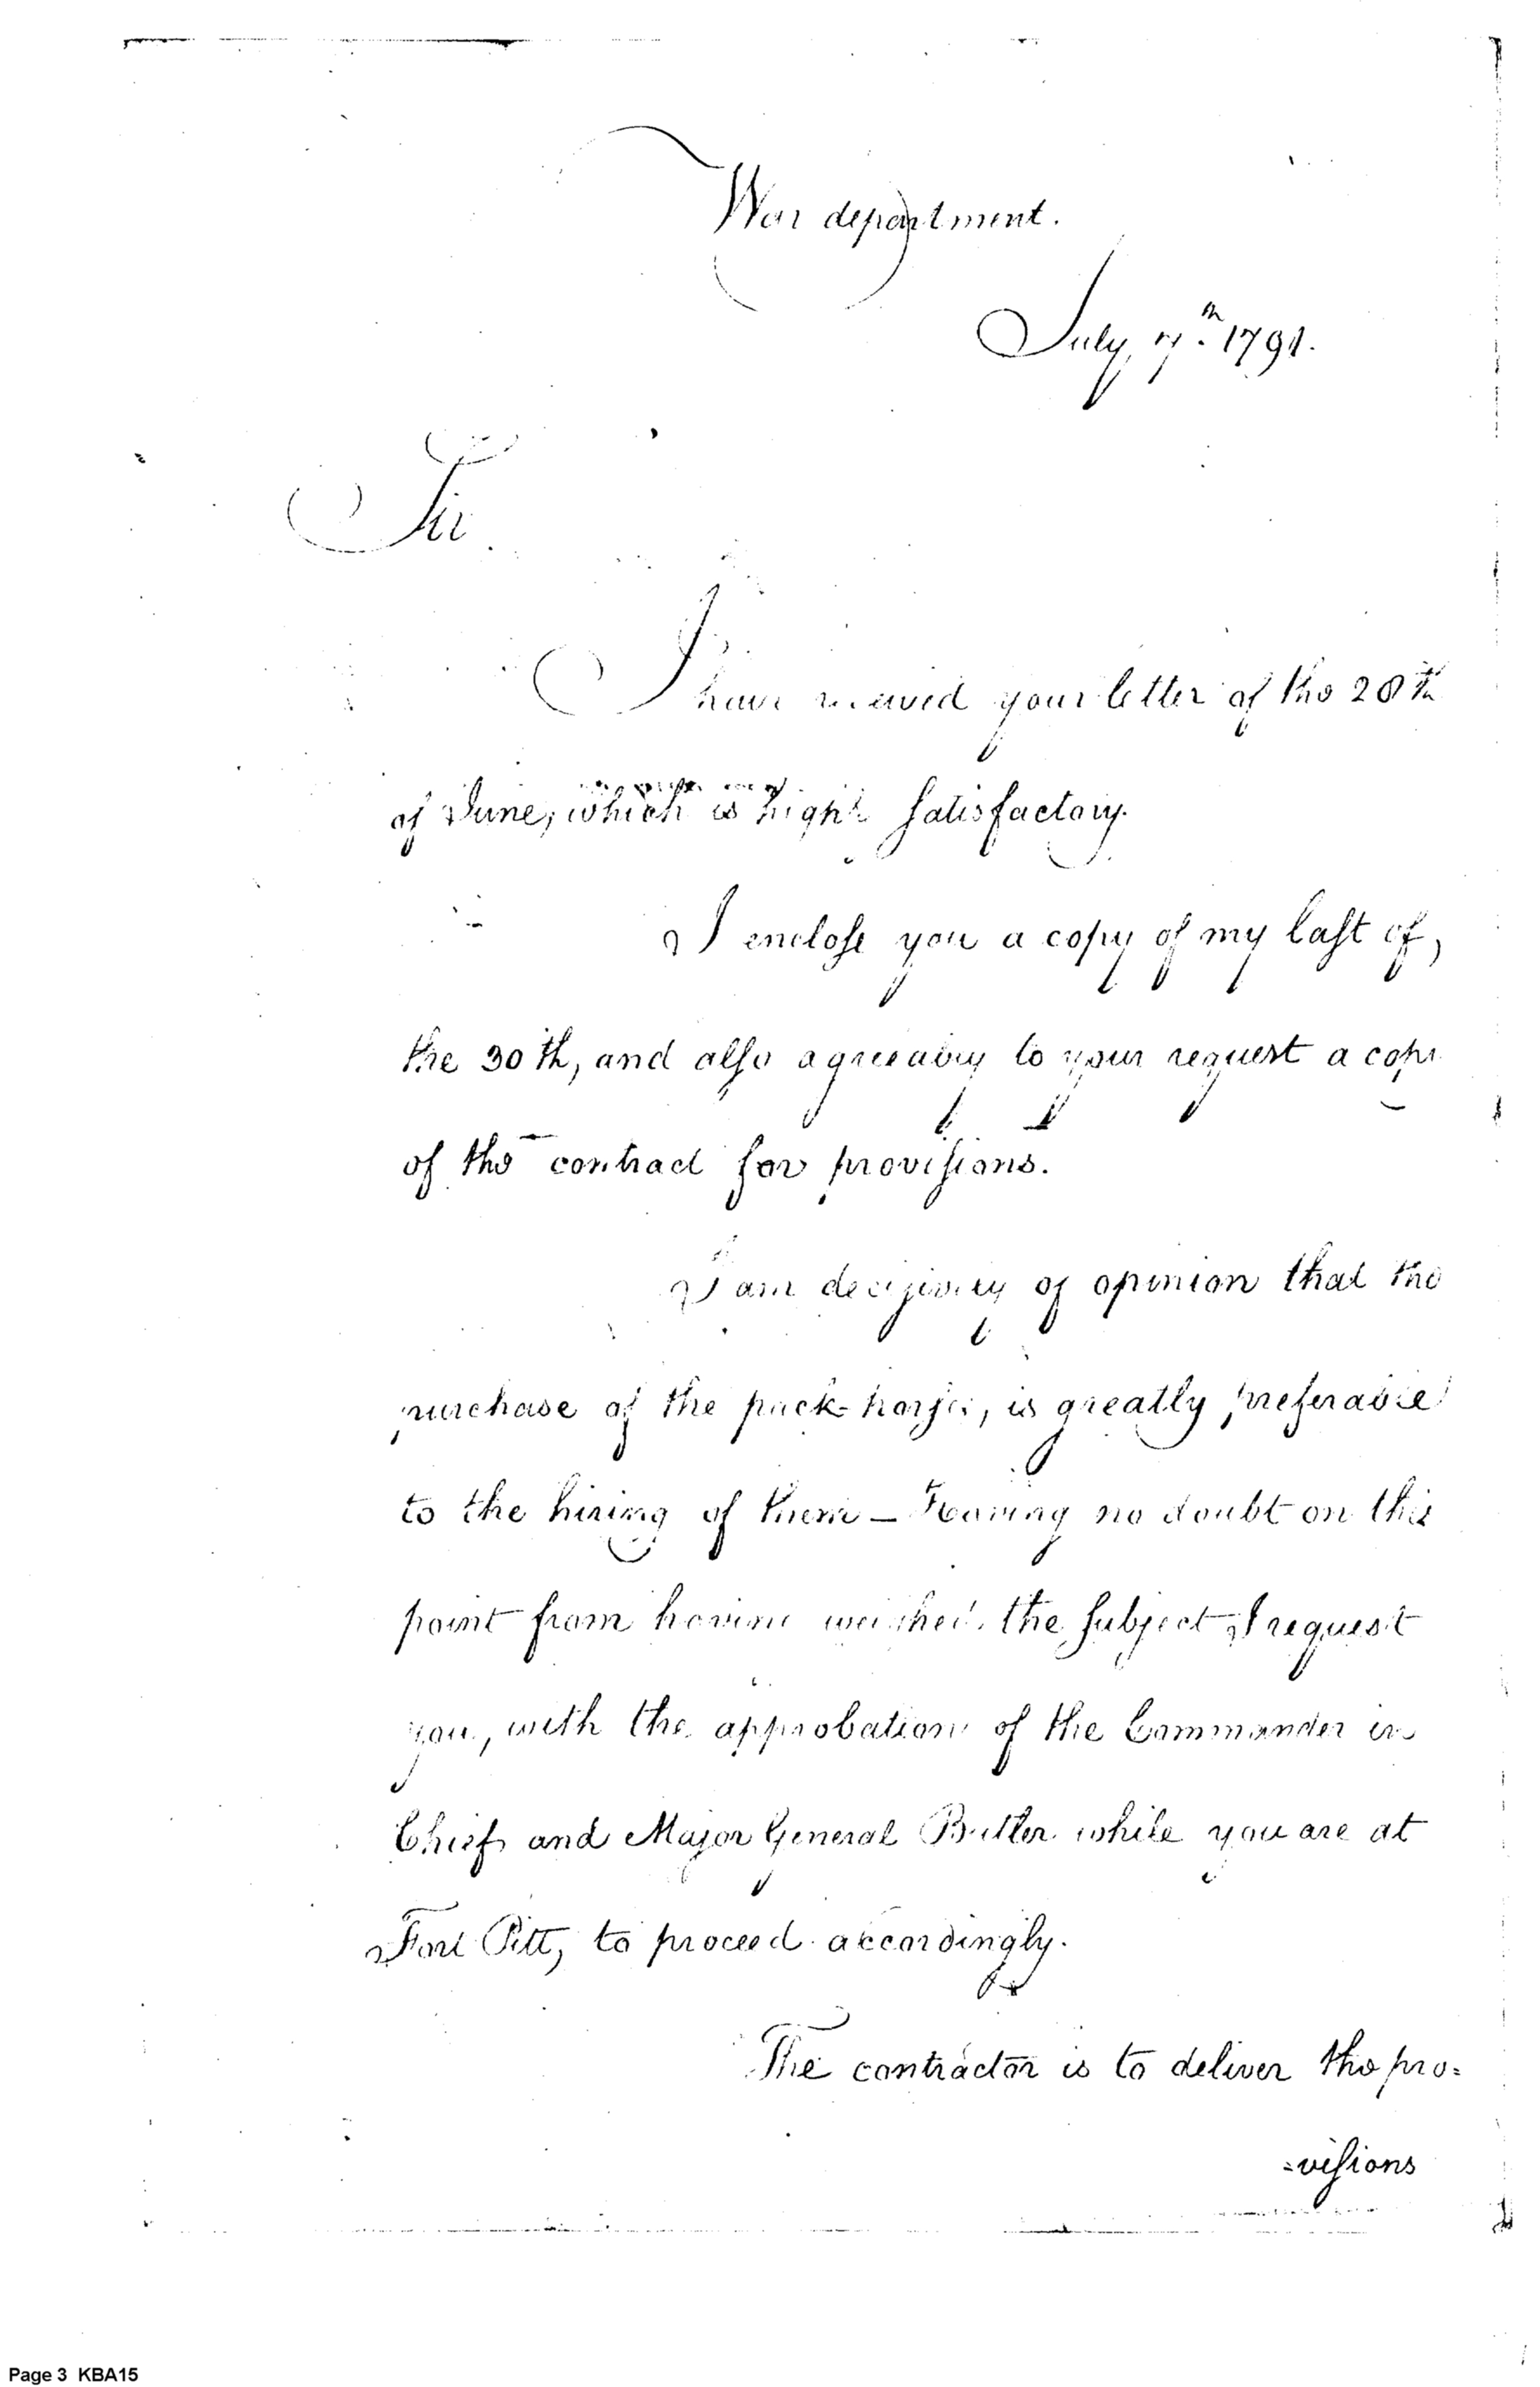 War department.
July, 7.th 1791.
Sir
I have received your letter of the 28th
of June, which is highly satisfactory.
I enclose you a copy of my last of,
the 30th, and also agreeably to your request a copy
of the contract for provisions.
I am decisively of opinion that the
purchase of the pack-horses, is greatly preferable
to the hiring of them — Having no doubt on this
point from having weighed the subject I request
you, with the approbation of the Commander in
Chief and Major General Butler while you are at
Fort Pitt, to proceed accordingly.
The contractor is to deliver the pro=
=visions
Page 3 KBA15